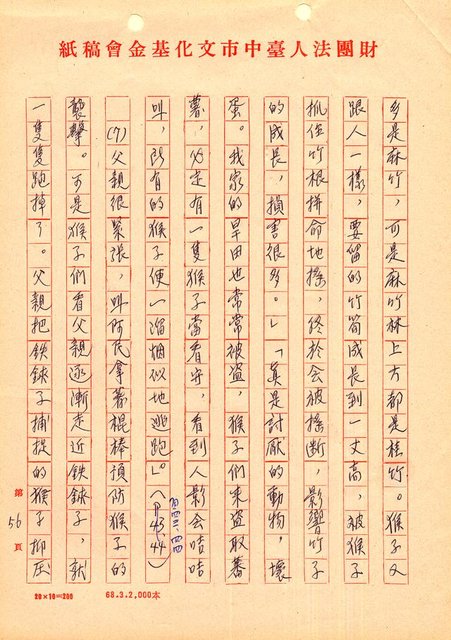 財團法人臺中市文化基金會稿紙
乡是麻竹，可是麻竹林上方都是桂竹。猴子又
跟人一樣，要留的竹筍成長到一丈高，被猴子
抓住竹根拼命地搖，終於会被搖断，影響竹子
的成長，損害很多。」「真是討厭的動物，壞
蛋。我家的旱田也常常被盗，猴子们来盗取蕃
薯，必定有一隻猴子當看守，看到人影会咭咭
叫，所有的猴子便一溜烟似地逃跑」。（P43.44）
四三、四四
(7)父親很緊張，叫阿民拿著棍棒預防猴子的
襲擊。可是猴子们看父親逐漸走近鉄鋏子，就
一隻隻跑掉了。父親把鉄鋏子捕捉的猴子抑压
第56頁
20×10=200
68.3.2,000本